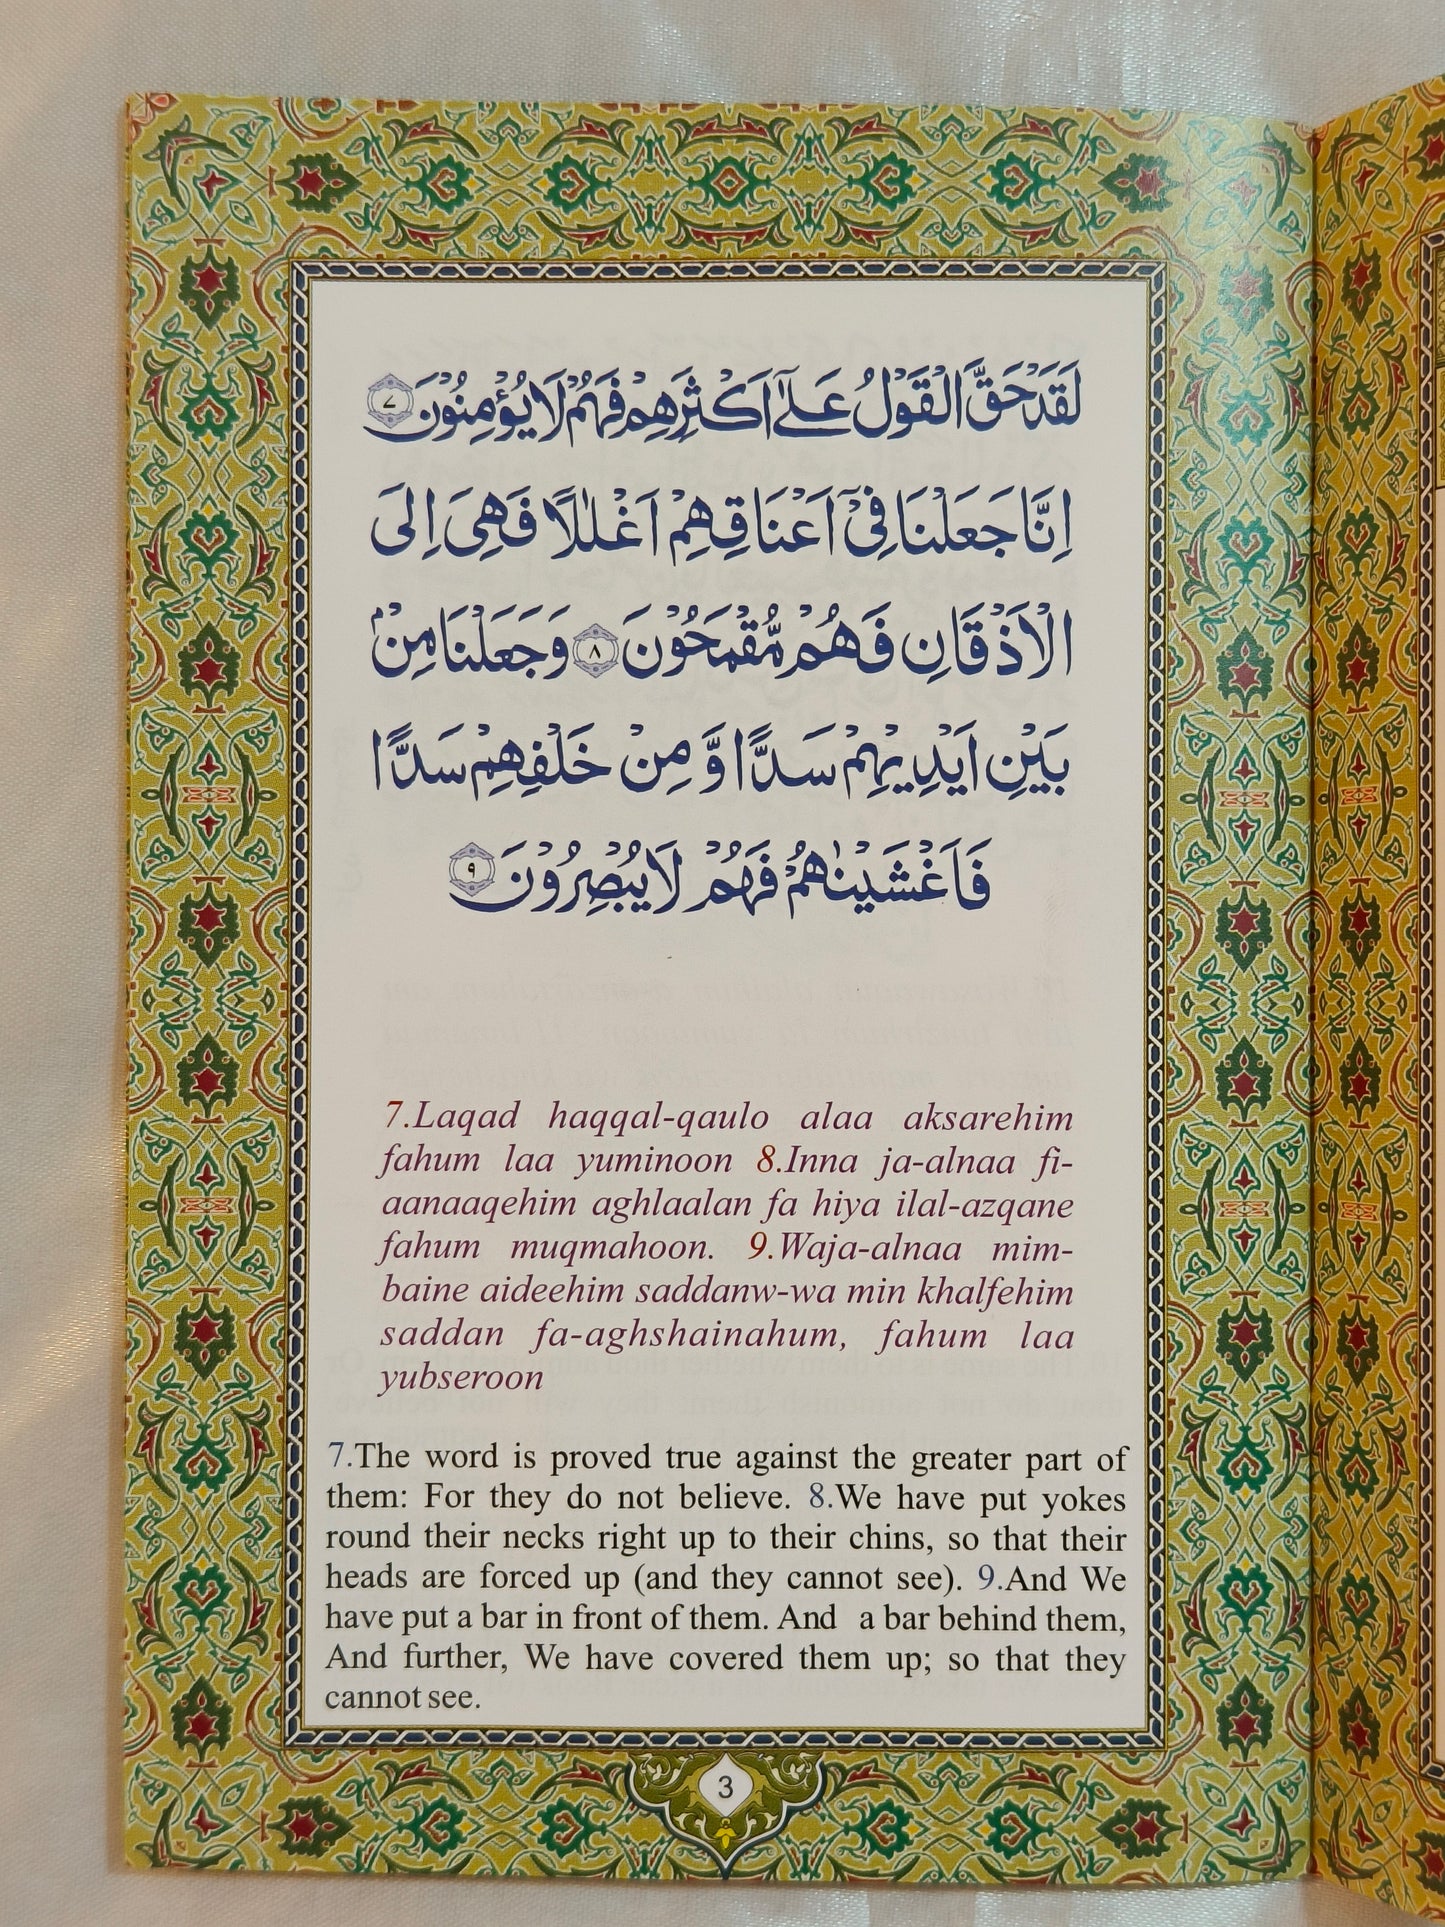 لَقَدْ حَقَّ الْقَوْلُ عَلٰٓى اَكْثَرِهِمْ فَهُمْ لَا يُؤْمِنُوْنَ ٧
اِنَّا جَعَلْنَا فِىْٓ اَعْنَاقِهِمْ اَغْلٰلًا فَهِىَ اِلَى
الْاَذْقَانِ فَهُمْ مُّقْمَحُوْنَ ٨ وَجَعَلْنَا مِنْۢ
بَيْنِ اَيْدِيْهِمْ سَدًّا وَّ مِنْ خَلْفِهِمْ سَدًّا
فَاَغْشَيْنٰهُمْ فَهُمْ لَا يُبْصِرُوْنَ ٩
7.Laqad haqqal-qaulo alaa aksarehim
fahum laa yuminoon 8.Inna ja-alnaa fi-
aanaaqehim aghlaalan fa hiya ilal-azqane
fahum muqmahoon. 9.Waja-alnaa mim-
baine aideehim saddanw-wa min khalfehim
saddan fa-aghshainahum, fahum laa
yubseroon
7.The word is proved true against the greater part of
them: For they do not believe. 8.We have put yokes
round their necks right up to their chins, so that their
heads are forced up (and they cannot see). 9.And We
have put a bar in front of them. And a bar behind them,
And further, We have covered them up; so that they
cannot see.
3